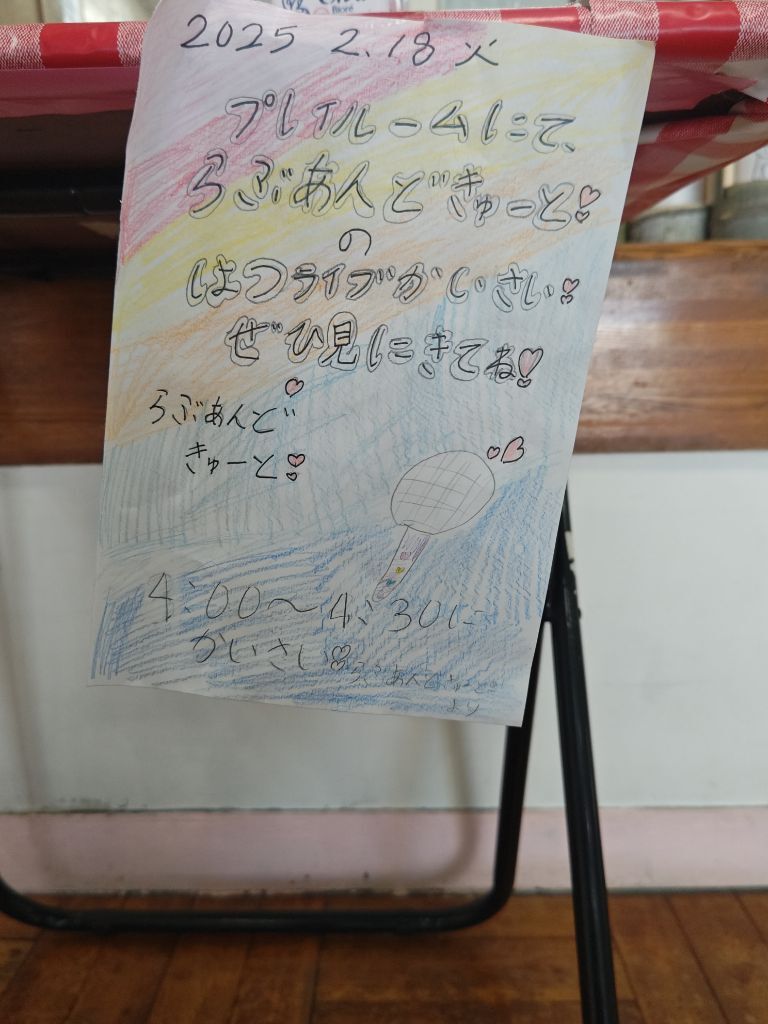 2025 2.18 火
プレイルームにて、
らぶあんどきゅーと
の
はつライブかいさい
ぜひ見にきてね!
らぶあんど
きゅーと
4:00〜4:30に
かいさい
らぶあんどきゅーと
より